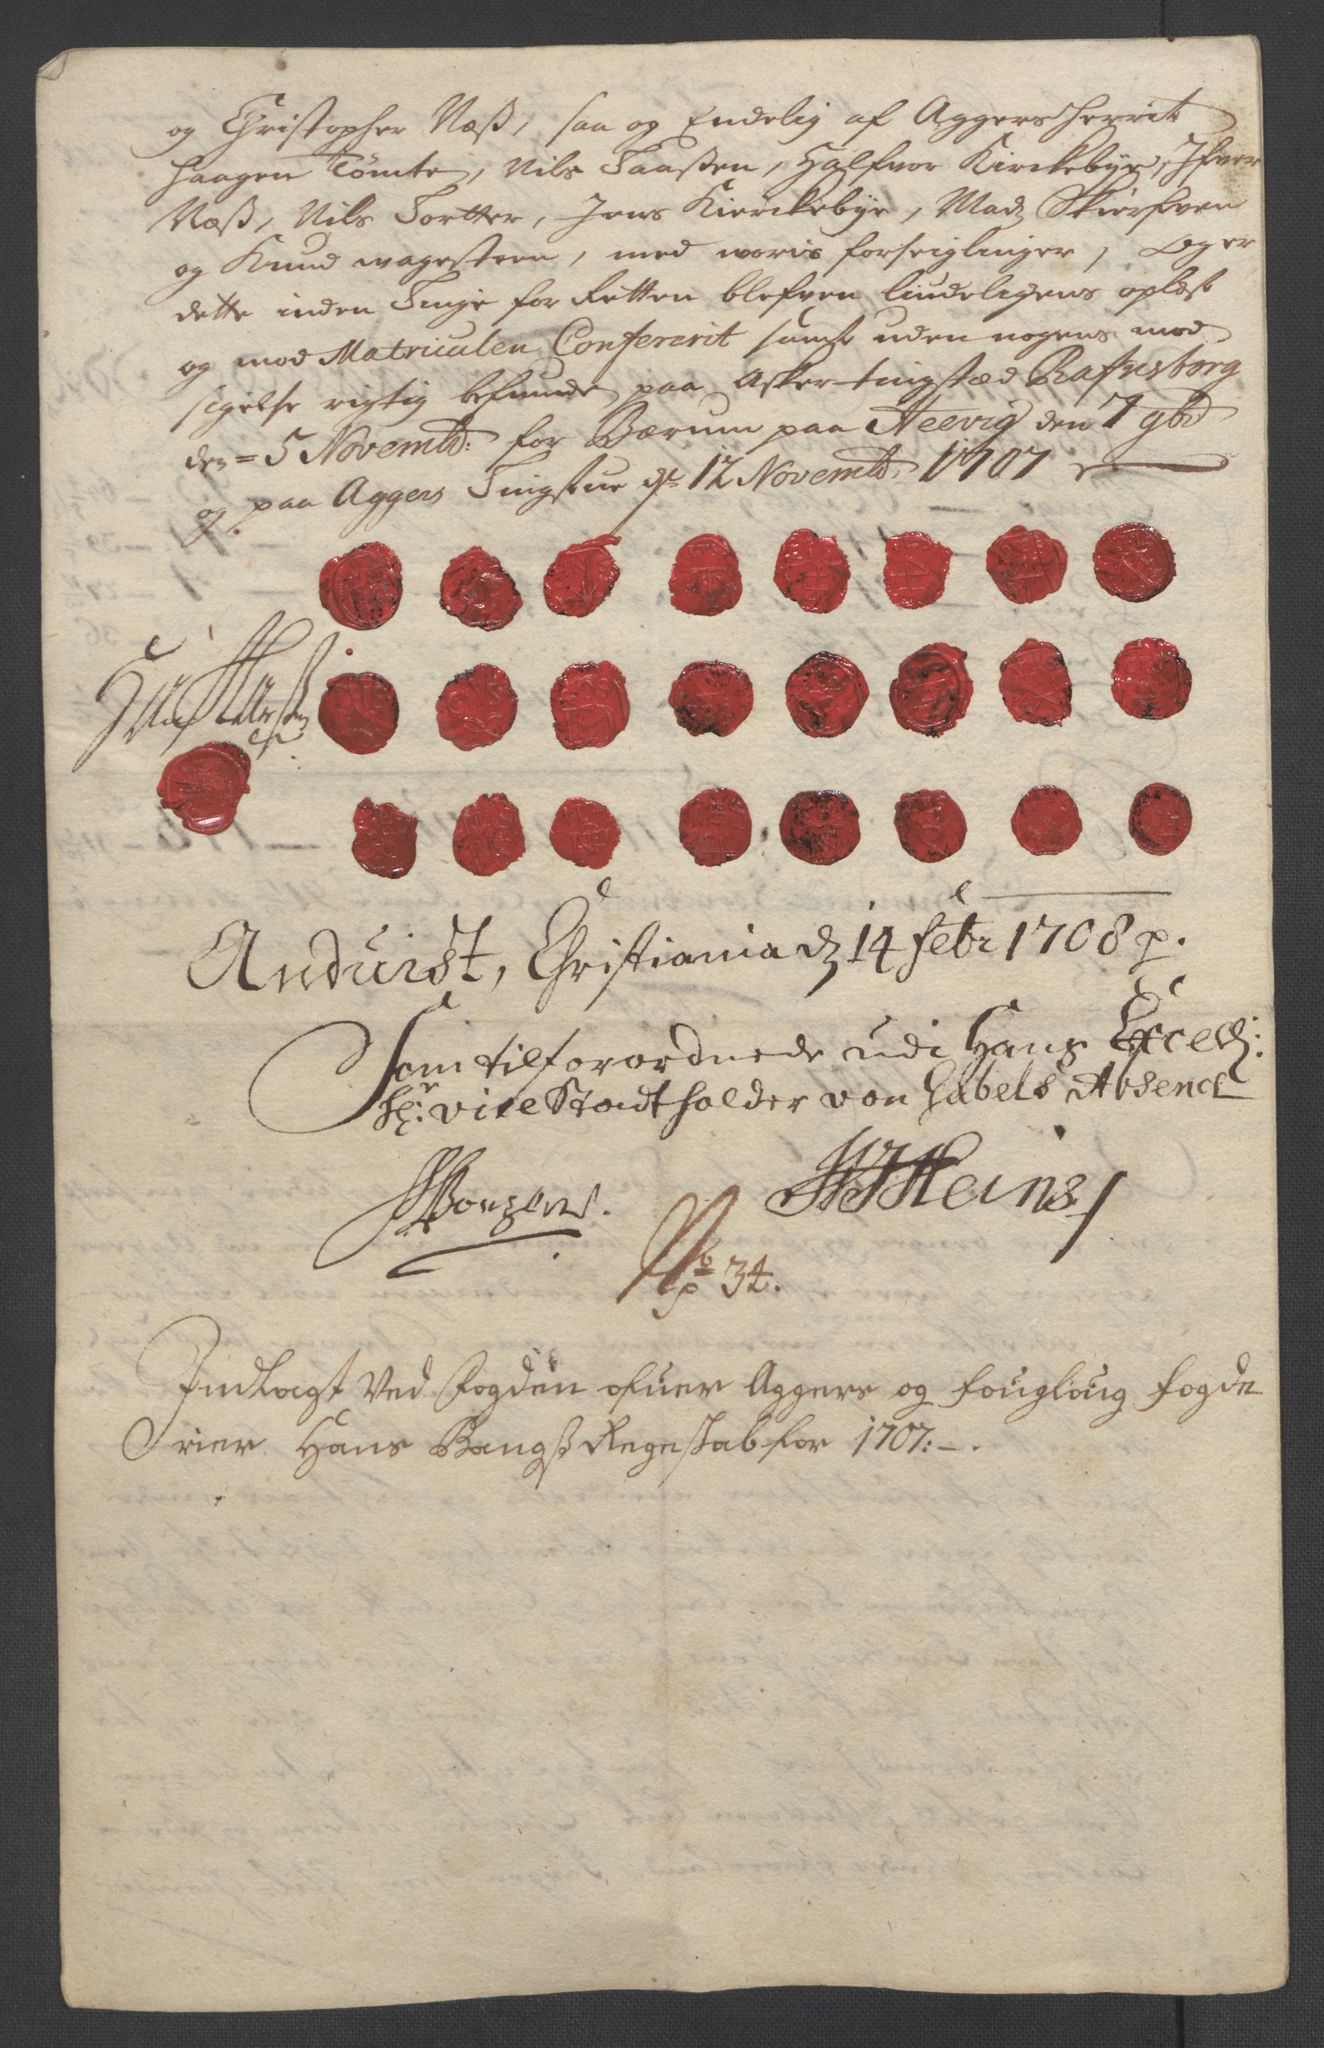 og Christopher Næß, saa og Endelig af Aggers herrit
haagen Tømte, Nils Taaßen, Halfvor Kirckebye, Ifver
Næß, Nils Tortter, Jens Kierckebye, Madz Skierfven
og Knud wagesteen, med woris forseiglinger, Og er
dette inden Tinge for Retten blefven liudeligens oplæst
og mod Matriculen Confererit samt uden nogens mod
sigelse rigtig befunde, paa Asker-tingstæd Rafnsborg
den = 5 Novembr: for Bærum paa Heevig den 7 9br
og paa Aggers Tingstue dn 12 Novembr, 1707

Anduist, Christiania dz 14 febr 1708 p.
Som tilforordnede udi Hans Excell:
hr: vice Stadtholder von Gabels Absence
WHeins
No 34.
Indlagt Ved Fogden ofuer Aggers og fougloug fogde
rier Hans Bangs Regeskab for 1707:-.